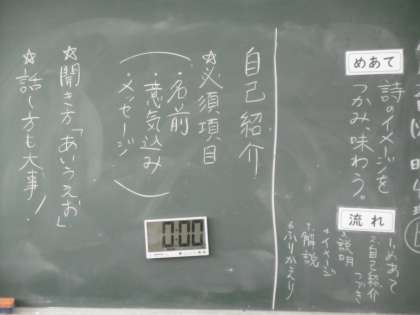 めあて
詩のイメージを
つかみ、味わう。
流れ
1.めあて
2.自己紹介
つづき
3.説明
4.イメージ
5.解説
6.ふりかえり
自己紹介
☆必須項目
・名前
・意気込み
・メッセージ
☆聞き方「あいうえお」
☆話し方も大事!
0:00